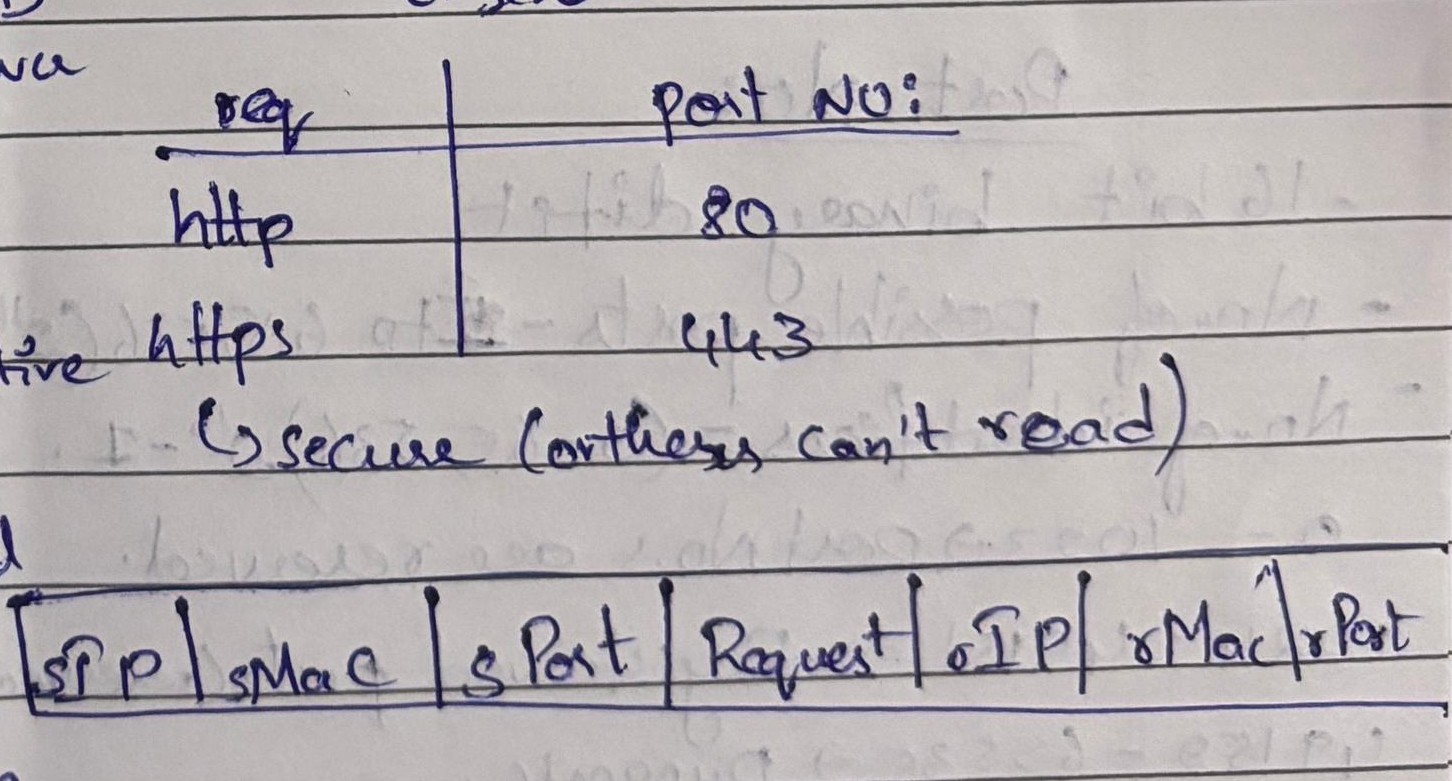 req | Port No:
http | 80
https | 443
↳ secure (orthers can't read)
sIP | sMac | sPort | Request | rIP | rMac | rPort